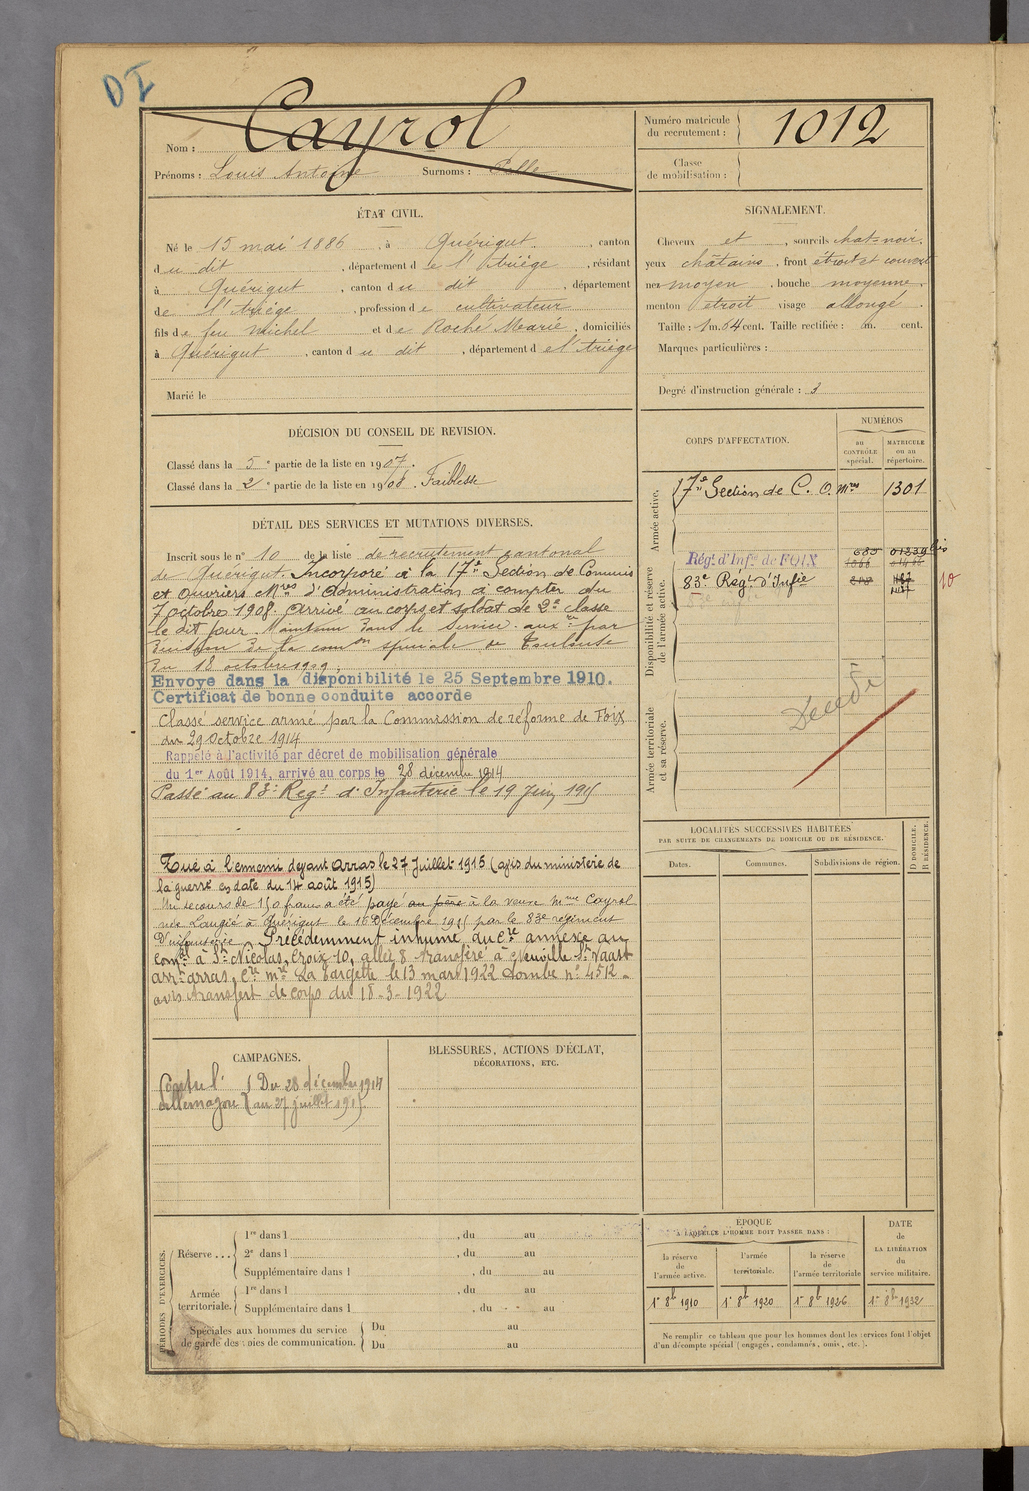 DI
Nom : Cayrol
Prénoms : Louis Antoine Surnoms :
Numéro matricule du recrutement : 1012
Classe de mobilisation :
ÉTAT CIVIL.
Né le 15 mai 1886, à Quérigut, canton
du dit, département de l'Ariège, résidant
à Quérigut, canton du dit, département
de l'Ariège, profession de cultivateur
fils de feu Michel et de Roché Marie, domiciliés
à Quérigut, canton du dit, département de l'Ariège
Marié le
SIGNALEMENT.
Cheveux et, sourcils chat-noir,
yeux châtains, front étroit et couvert
nez moyen, bouche moyenne,
menton étroit visage allongé
Taille : 1 m. 64 cent. Taille rectifiée : m. cent.
Marques particulières :
Degré d'instruction générale : 3
DÉCISION DU CONSEIL DE REVISION.
Classé dans la 5e partie de la liste en 1907.
Classé dans la 2e partie de la liste en 1908. Faiblesse
DÉTAIL DES SERVICES ET MUTATIONS DIVERSES.
Inscrit sous le n° 10 de la liste de recrutement cantonal
de Quérigut. Incorporé à la 17e Section de Commis
et Ouvriers Mres d'Administration à compter du
7 octobre 1908. Arrivé au corps et soldat de 2e classe
le dit jour. Maintenu dans le service auxre par
décision de la comon spéciale de Toulouse
du 18 octobre 1909.
Envoyé dans la disponibilité le 25 Septembre 1910.
Certificat de bonne conduite accordé
Classé service armé par la Commission de réforme de Foix
du 29 octobre 1914
Rappelé à l'activité par décret de mobilisation générale
du 1er Août 1914, arrivé au corps le 28 décembre 1914
Passé au 83e Regt d'Infanterie le 19 Juin 1915
Tué à l'ennemi devant Arras le 27 Juillet 1915 (avis du ministère de
la guerre en date du 14 août 1915)
Un secours de 150 francs a été payé au père à la veuve Mme Cayrol
née Laugié à Quérigut le 16 Décembre 1915 par le 83e régiment
d'infanterie. Précédemment inhumé au cre annexe au
comal à St Nicolas, Croix 10, allée 8 transféré à Neuville St Vaast
arrt Arras, cre mre La Targette le 13 mars 1922 tombe n° 4512 -
avis transfert de corps du 18-3-1922
CORPS D'AFFECTATION.
NUMÉROS
au CONTRÔLE spécial.
MATRICULE ou au répertoire.
Armée active.
17e Section de C. O. Mres 1301
Disponibilité et réserve de l'armée active.
Régt d'Infie de FOIX
83e Régt d'Infie
10
Armée territoriale et sa réserve.
Décédé
LOCALITÉS SUCCESSIVES HABITÉES
PAR SUITE DE CHANGEMENTS DE DOMICILE OU DE RÉSIDENCE.
Dates. Communes. Subdivisions de région. D DOMICILE. R RÉSIDENCE.
CAMPAGNES.
Contre l' { Du 28 décembre 1914
Allemagne { au 27 juillet 1915.
BLESSURES, ACTIONS D'ÉCLAT,
DÉCORATIONS, ETC.
PÉRIODES D'EXERCICES.
Réserve ...
1re dans l , du au
2e dans l , du au
Supplémentaire dans l , du au
Armée territoriale.
1re dans l , du au
Supplémentaire dans l , du au
Spéciales aux hommes du service
de garde des voies de communication.
Du au
Du au
ÉPOQUE
A LAQUELLE L'HOMME DOIT PASSER DANS :
la réserve de l'armée active.
l'armée territoriale.
la réserve de l'armée territoriale
DATE de LA LIBÉRATION du service militaire.
1er 8bre 1910 1er 8bre 1920 1er 8bre 1926 1er 8bre 1932
Ne remplir ce tableau que pour les hommes dont les services font l'objet
d'un décompte spécial (engagés, condamnés, omis, etc.).